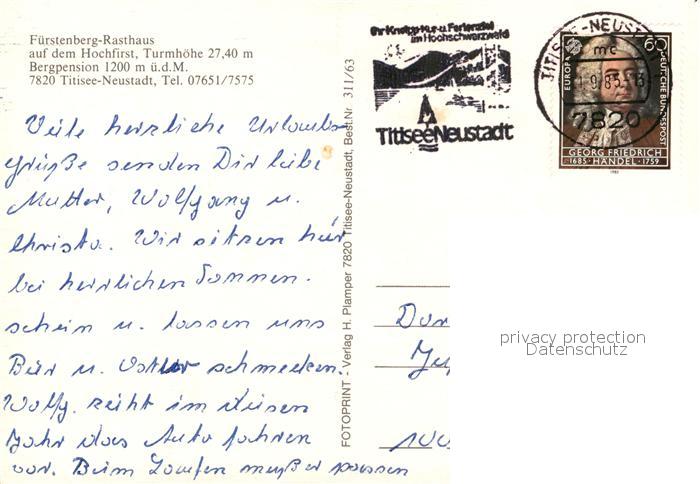 Fürstenberg-Rasthaus
auf dem Hochfirst, Turmhöhe 27,40 m
Bergpension 1200 m ü.d.M.
7820 Titisee-Neustadt, Tel. 07651/7575
Ihr Kneipp-Kur-u. Ferienziel
im Hochschwarzwald
Titisee Neustadt
TITISEE-NEUST
mc
7820
EUROPA
60
DEUTSCHE BUNDESPOST
GEORG FRIEDRICH
1685 · HÄNDEL · 1759
Viele herzliche Urlaubs
grüße senden Dir liebe
Mutter, Wolfgang u.
Christa. Wir sitzen hier
bei herrlichen Sonnen.
schein u. lassen uns
Bier u. schmecken.
Wolfg. zieht im
Jahr das Auto fahren
vor. Beim Laufen muß er passen
FOTOPRINT - Verlag H. Plamper 7820 Titisee-Neustadt, Best.Nr. 311/63
privacy protection
Datenschutz